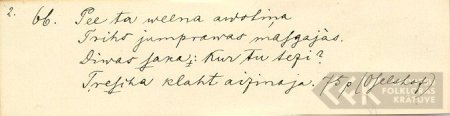 2. 66. Pee ta weena awotiņa
Trihs jumprawas masgajās.
Diwas saka: Kur tu tezi?
Treschā klaht aizinaja. 75p (Oselshof)
LFK
FOLKLORAS
KRĀTUVE